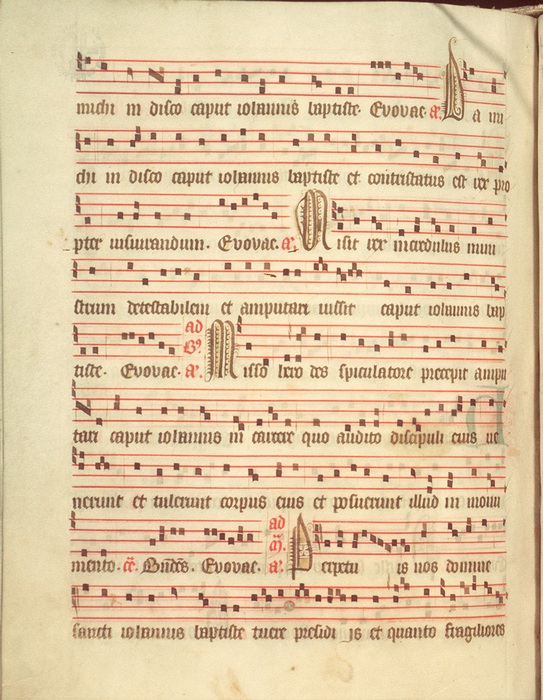 michi in disco caput iohannis baptiste. Evovae. a. Da mi
chi in disco caput iohannis baptiste et contristatus est rex pro
pter iusiurandum. Evovae. a. Misit rex incredulus mini
strum detestabilem et amputari iussit caput iohannis bap
tiste. Evovae. ad B. a. Misso vero des spiculatore precepit ampu
tari caput iohannis in carcere quo audito discipuli eius ve
nerunt et tulerunt corpus eius et posuerunt illud in monu
mento. Evovae. ad a. Perpetu is nos domine
sancti iohannis baptiste tuere presidi is et quanto fragiliores